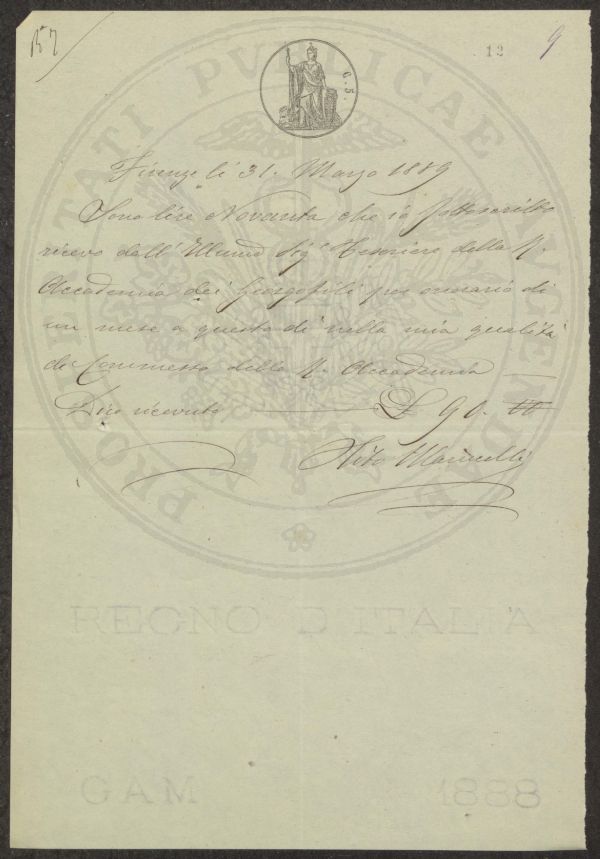 12
9
PROSPERITATI PVBLICAE AVGENDAE
C. 5.
Firenze lì 31. Marzo 1889
Sono lire Novanta che io sottoscritto
ricevo dall' Illmo Sigr Tesoriere della R.
Accademia dei Georgofili per onorario di
un mese a questo dì nella mia qualità
di Commesso della R. Accademia
Dico ricevute £ 90. 00
Tito
REGNO D'ITALIA
GAM 1888